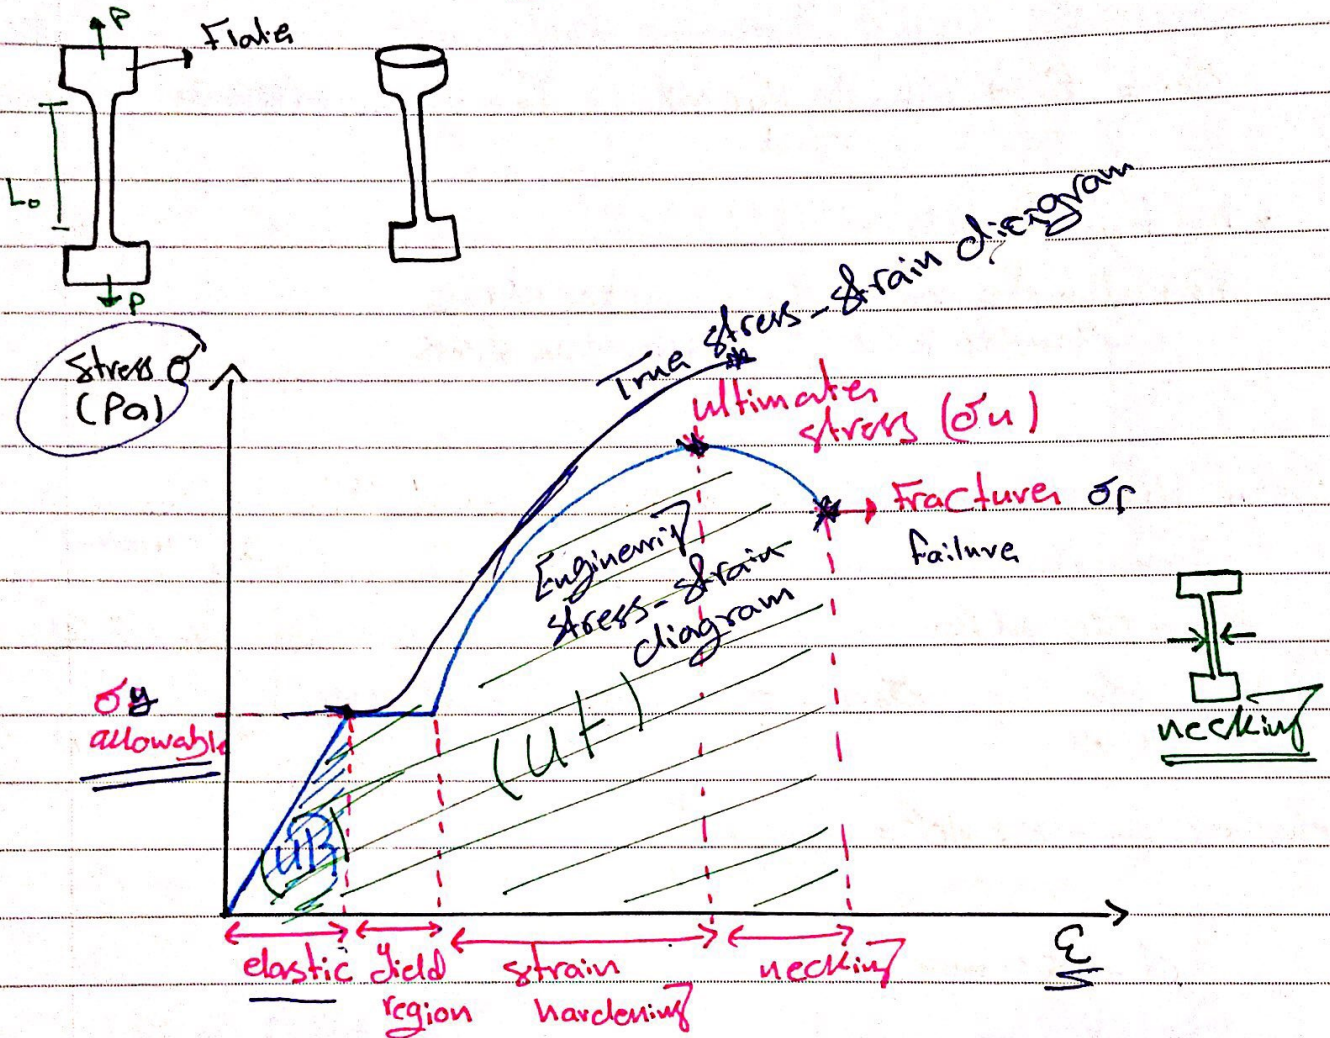 P
Flater
L₀
P
stress σ
(Pa)
True stress-strain diagram
ultimater
stress (σu)
Fracturer or
failure
Enginering
stress-strain
diagram
(Ut)
σy
allowable
necking
ε
elastic
yield
region
strain
hardening
necking